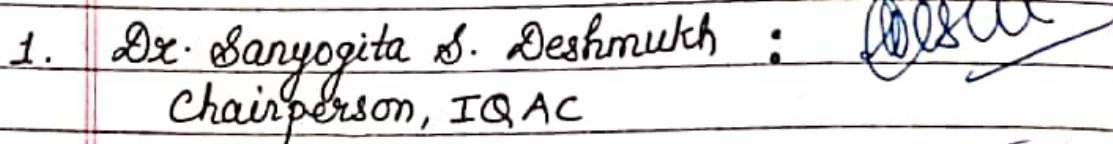 1. Dr. Sanyogita S. Deshmukh :
Chairperson, IQAC